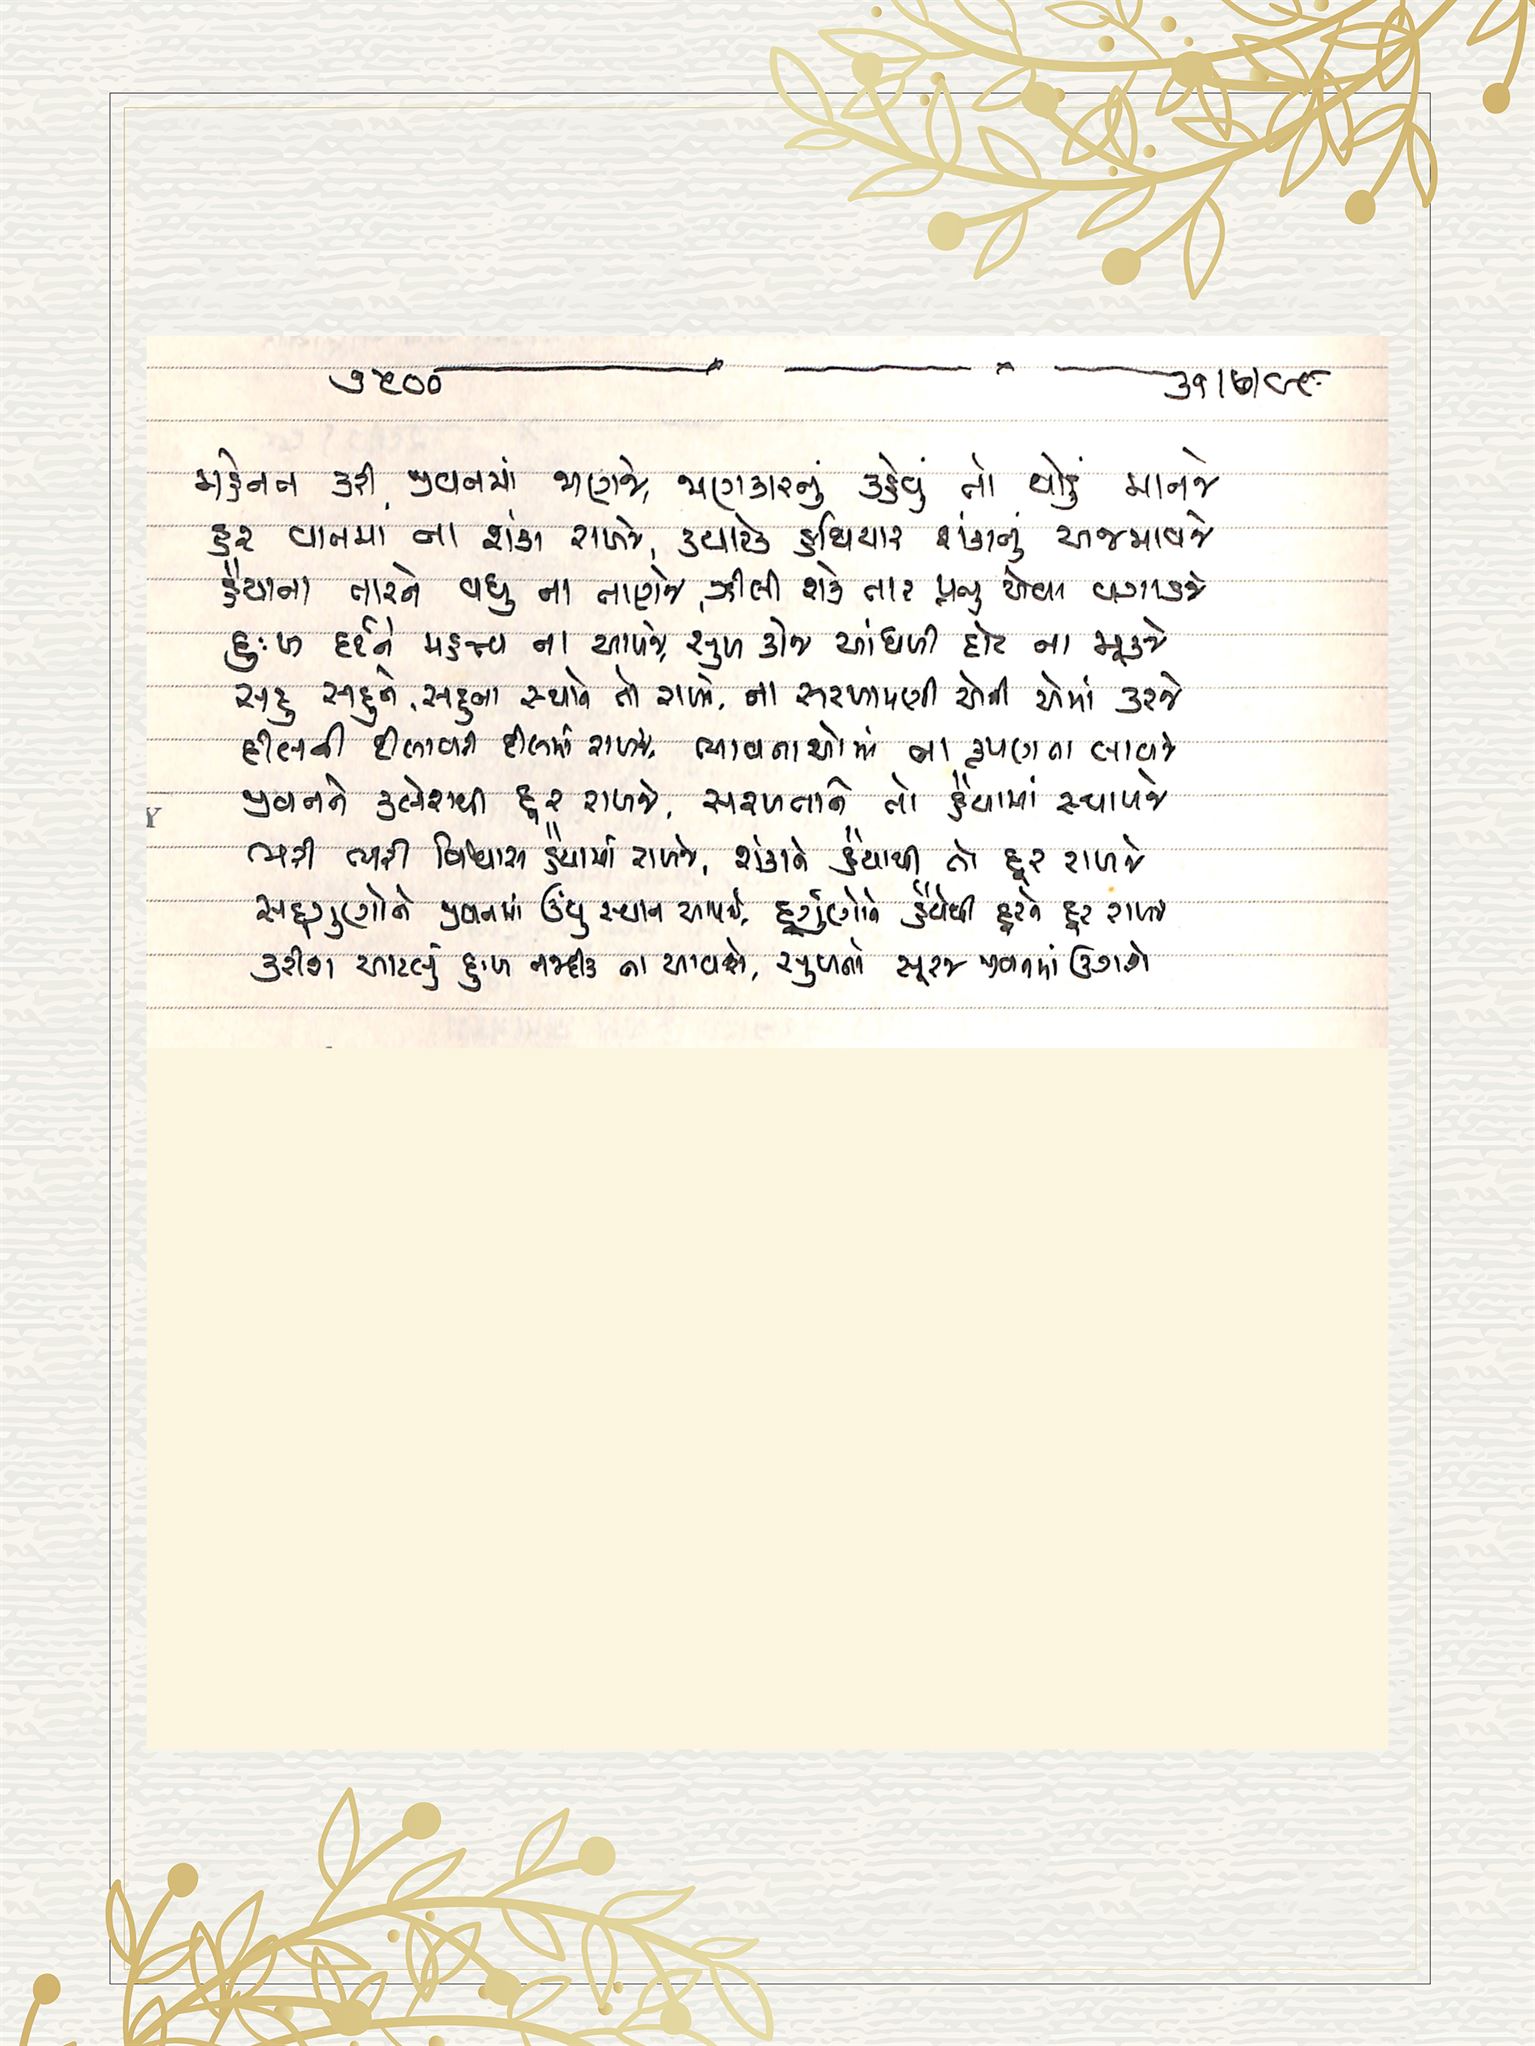 ૭૫૦૦ ૩૧/૭/૯૮
મહેનત કરી જીવનમાં જાણજે, જાણકારનું કહેવું તો થોડું માનજે
હર વાતમાં ના શંકા રાખજે, ક્યારેક હથિયાર શંકાનું અજમાવજે
હૈયાના તારને વધુ ના તાણજે, ઝીલી શકે તાર પ્રભુ એવા વગાડજે
દુઃખ દર્દને મહત્ત્વ ના આપજે, સુખ કાજે આંધળી દોટ ના મૂકજે
સહુ સહુને, સહુના સ્થાને તો રાખજે, ના સરખામણી એની એમાં કરજે
દીલની દીલાવરી દીલમાં રાખજે, ભાવનાઓમાં ના કૃપણતા લાવજે
જીવનને કલેશથી દૂર રાખજે, સરળતાને તો હૈયામાં સ્થાપજે
ભરી ભરી વિશ્વાસ હૈયામાં રાખજે, શંકાને હૈયાથી તો દૂર રાખજે
સદ્ગુણોને જીવનમાં ઉંચુ સ્થાન આપજે, દુર્ગુણોને હૈયેથી દૂરને દૂર રાખજે
કરીશ આટલું દુઃખ નજદીક ના આવશે, સુખનો સૂરજ જીવનમાં ઉગશે
Y